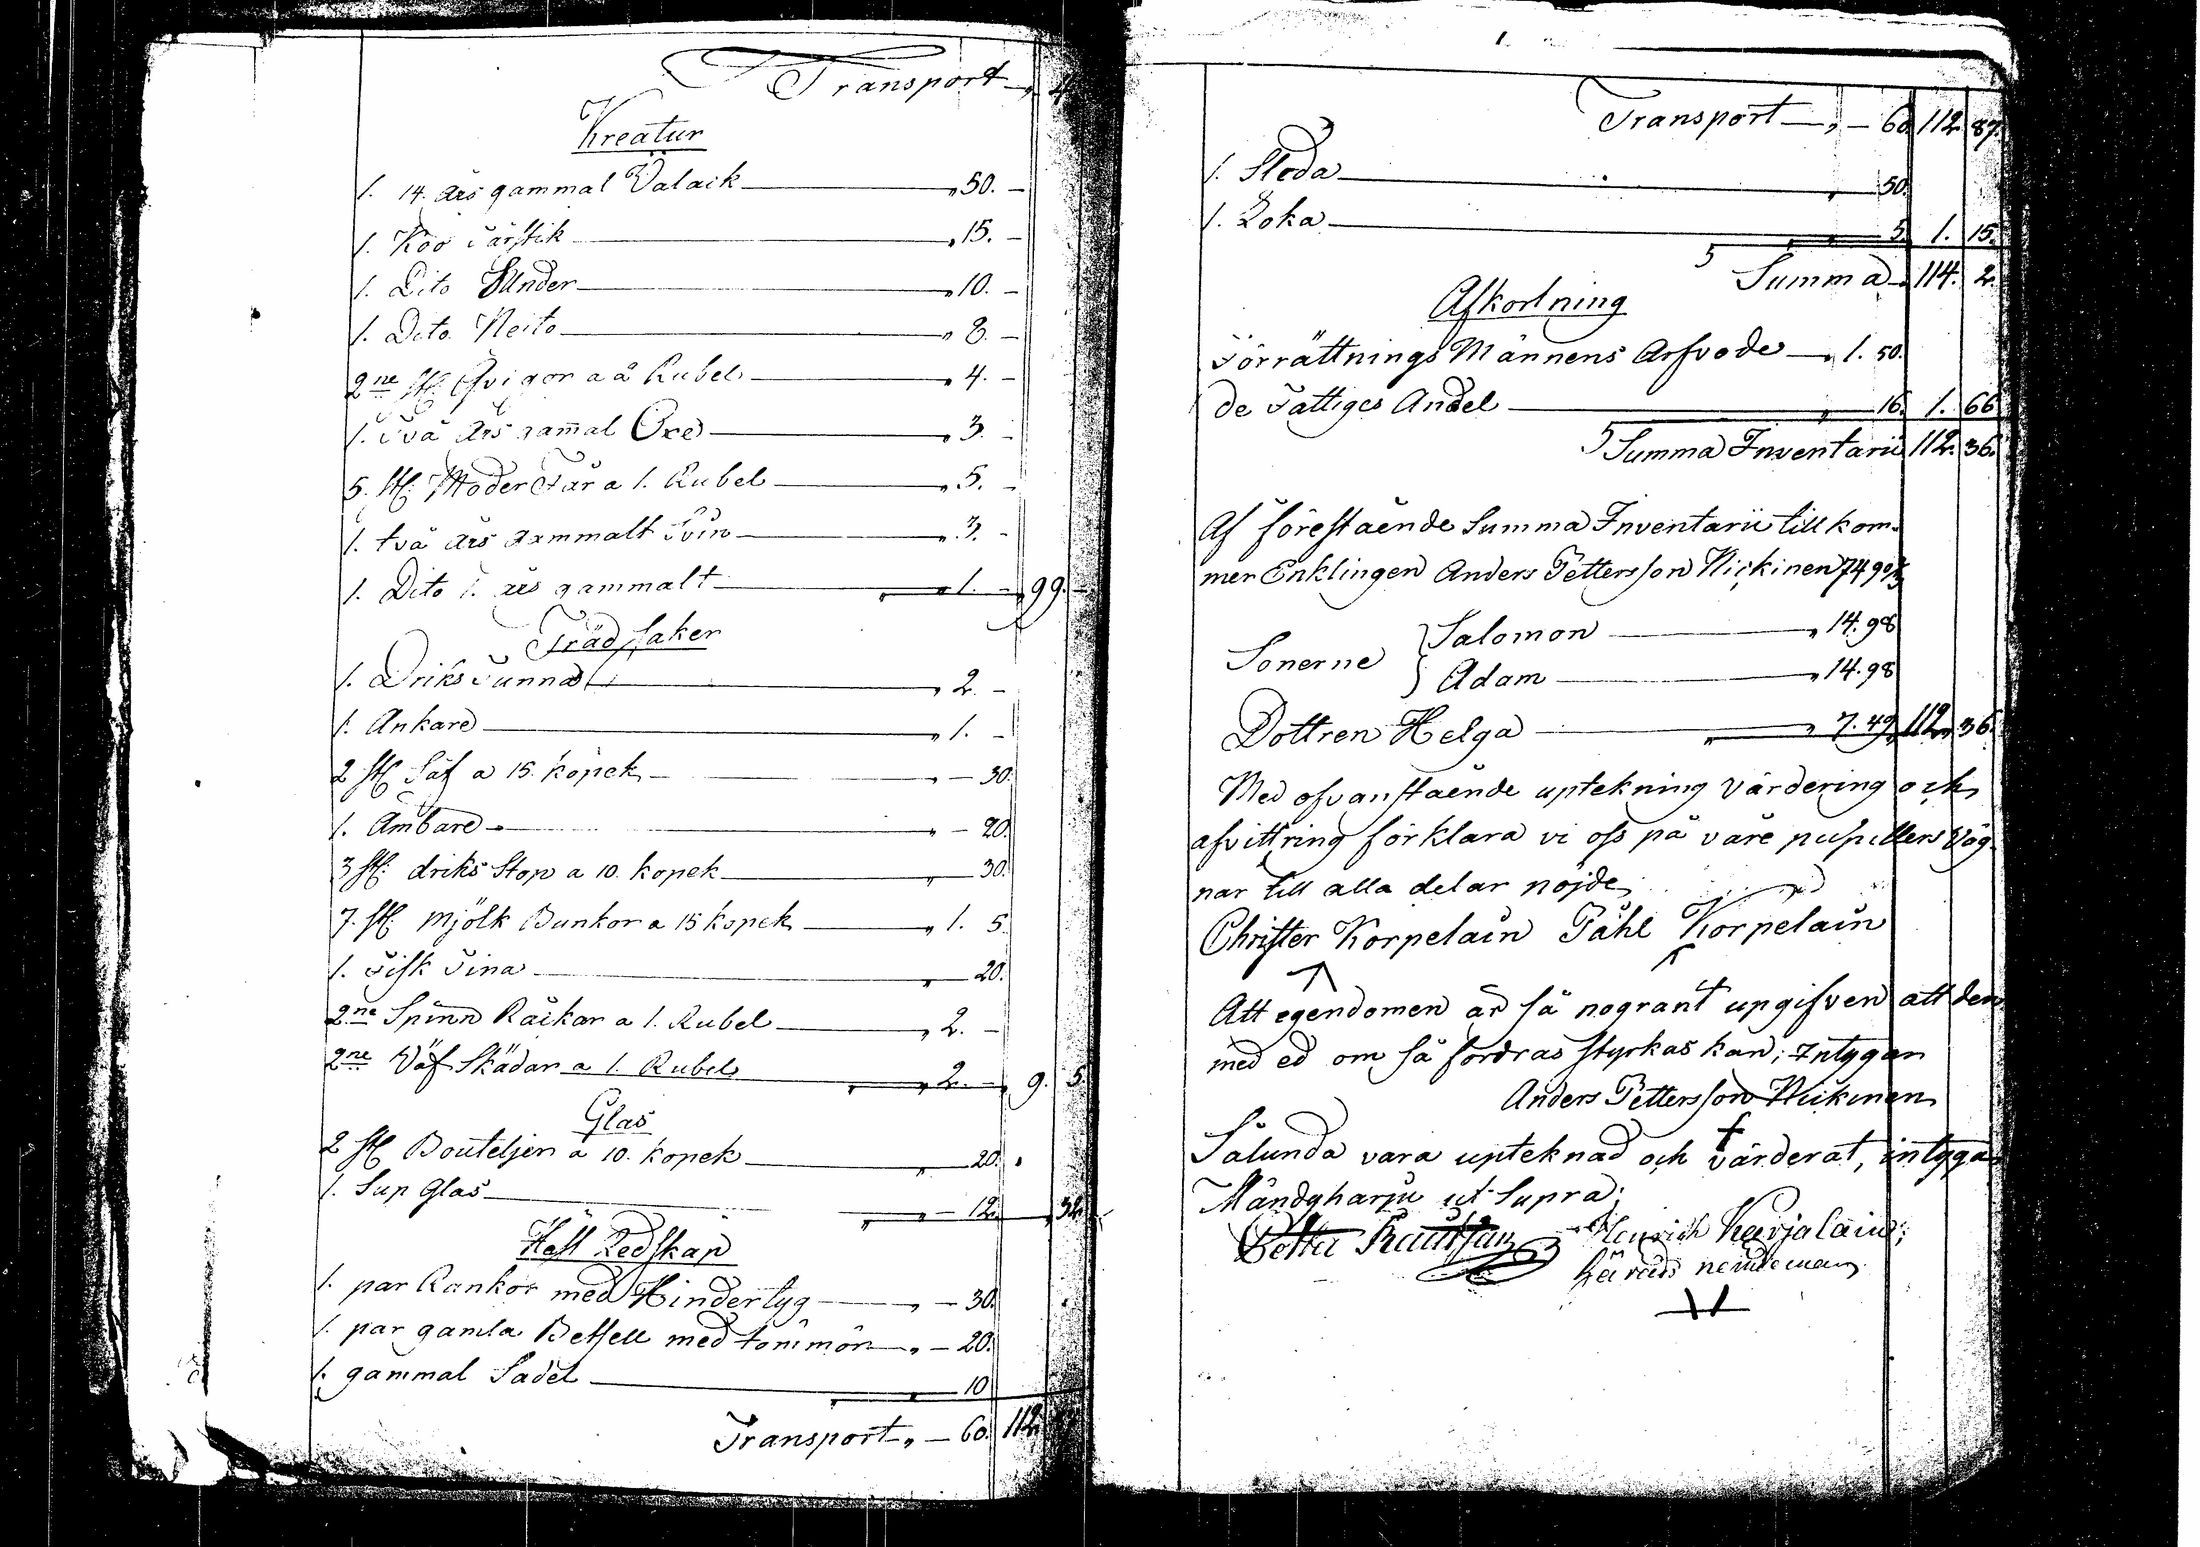 Transport — „ 4
Kreatur
1. 14. års gammal Valack — „ 50. —
1. Koo Tärstik — „ 15. —
1. Dito Sunder — „ 10. —
1. Dito Neito — „ 8. —
2ne st: Qvigor a 2 Rubel — „ 4. —
1. Två Års gam̄al Oxe — „ 3. —
5. st: Moder Får a 1. Rubel — „ 5. —
1. två års gammalt Svin — „ 3. —
1. Dito 1. års gammalt — „ 1. — 99. —
Träd saker
1. Driks Tunna — „ 2. —
1. Ankare — „ 1. —
2 st: Såf a 15. kopek — „ — 30.
1. Ämbare — „ — 20.
3 st: driks Stop a 10. kopek — „ 30.
7. st: Mjölk Bunkor a 15 kopek — „ 1. 5
1. Fisk Tina — „ 20.
2ne Spinn Råckar a 1. Rubel — „ 2. —
2ne Väf Skädar a 1. Rubel — „ 2. — 9. 5.
Glas
2 st: Bouteljer a 10. kopek — „ 20.
1. Sup Glas — „ — 12. „ 32.
Häst Redskap
1. par Rankor med Hindertyg — „ — 30.
1. par gamla Betsell med tömmar — „ — 20.
1. gammal Sadel — „ 10
Transport „ — 60. 112.
Transport — „ — 60. 112. 87.
1. Sleda — „ 50.
1. Loka — „ 5. 1. 15.
Summa — 114. 2.
Afkortning
Förrättnings Männens Arfvode — „ 1. 50.
de Fattiges Andel — „ 16. 1. 66
Summa Inventarii 112. 36.
Af förestående Summa Inventarii till kom-
mer Enklingen Anders Pettersson Hickinen 74 90⅔
Sonerne { Salomon — „ 14. 98
Adam — „ 14. 98
Dottren Helga — „ 7. 49 112. 36.
Med ofvanstående uptekning Värdering och
afvittring förklara vi oss på våre pupillers Väg-
nar till alla delar nöjde
Christer Korpelain Påhl Korpelain
Att egendomen är så nogrant upgifven att den
med ed om så fordras styrkas kan; Intygar
Anders Pettersson Hickinen
Sålunda vara upteknad och värderat, intygar
Mändyharju ut Supra;
Henrich Karjalain;
härads nemdeman